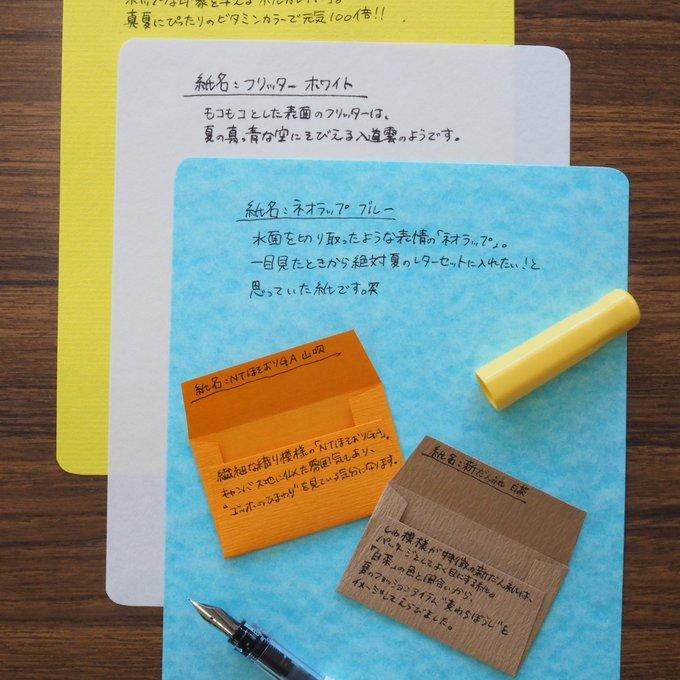 真夏にぴったりのビタミンカラーで元気100倍!!
紙名:フリッター ホワイト
モコモコとした表面のフリッターは、
夏の真っ青な空にそびえる入道雲のようです。
紙名:ネオラップ ブルー
水面を切り取ったような表情の「ネオラップ」。
一目見たときから絶対夏のレターセットに入れたい!と
思っていた紙です。笑
紙名:NTほそおりGA 山吹
繊細な織り模様の「NTほそおりGA」。
キャンバス地に似た雰囲気もあり、
"ゴッホのひまわり"を見ている気分になります。
紙名:新だん紙 白茶
しわ模様が特徴の新だん紙は、
パッケージとしてよく目にする紙。
「白茶」の色と風合いから、
夏のファッションアイテム"麦わらぼうし"を
イメージしてえらびました。